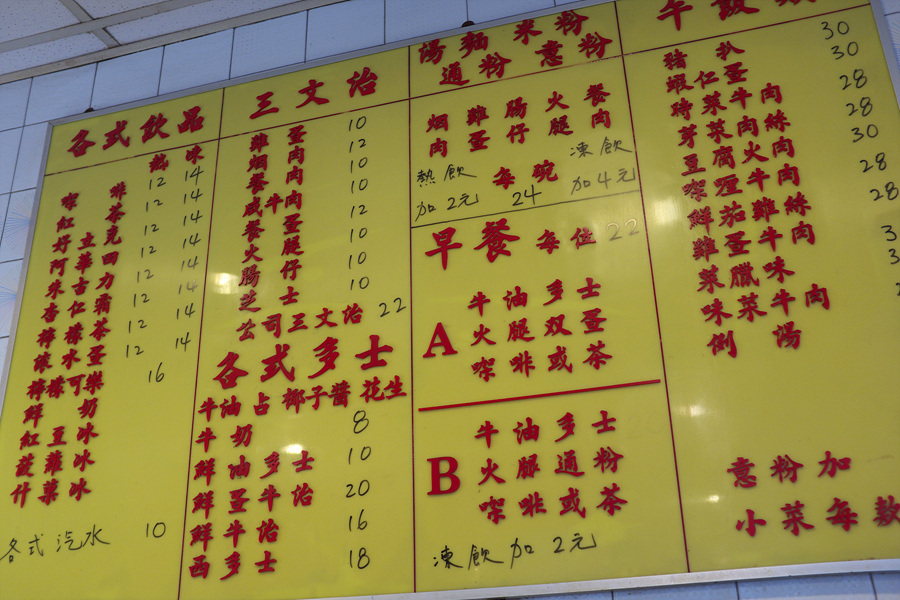 各式飲品
熱 凍
咖啡 12 14
紅茶 12 14
好立克 12 14
阿華田 12 14
朱古力 12 14
杏仁霜 12 14
檸檬茶 12 14
滾水蛋
檸檬可樂 16
鮮奶
紅豆冰
菠蘿冰
什菓冰
各式汽水 10
三文治
雞蛋 10
烟肉 12
餐肉 10
咸牛肉 10
餐蛋 12
火腿 10
腸仔 10
芝士 10
公司三文治 22
各式多士
牛油占椰子醬花生
牛奶 8
鮮油多士 10
鮮蛋牛治 20
鮮牛治 16
西多士 18
湯麵米粉
通粉意粉
烟雞腸火餐
肉蛋仔腿肉
熱飲 每碗 凍飲
加2元 24 加4元
早餐 每位 22
A
牛油多士
火腿双蛋
咖啡或茶
B
牛油多士
火腿通粉
咖啡或茶
凍飲加2元
豬扒 30
蝦仁蛋 30
時菜牛肉 28
芽菜肉絲 28
豆腐火肉 30
咖喱牛肉 28
鮮茄雞絲 28
雞蛋牛肉
菜臘味
味菜牛肉
例湯
意粉加
小菜每款